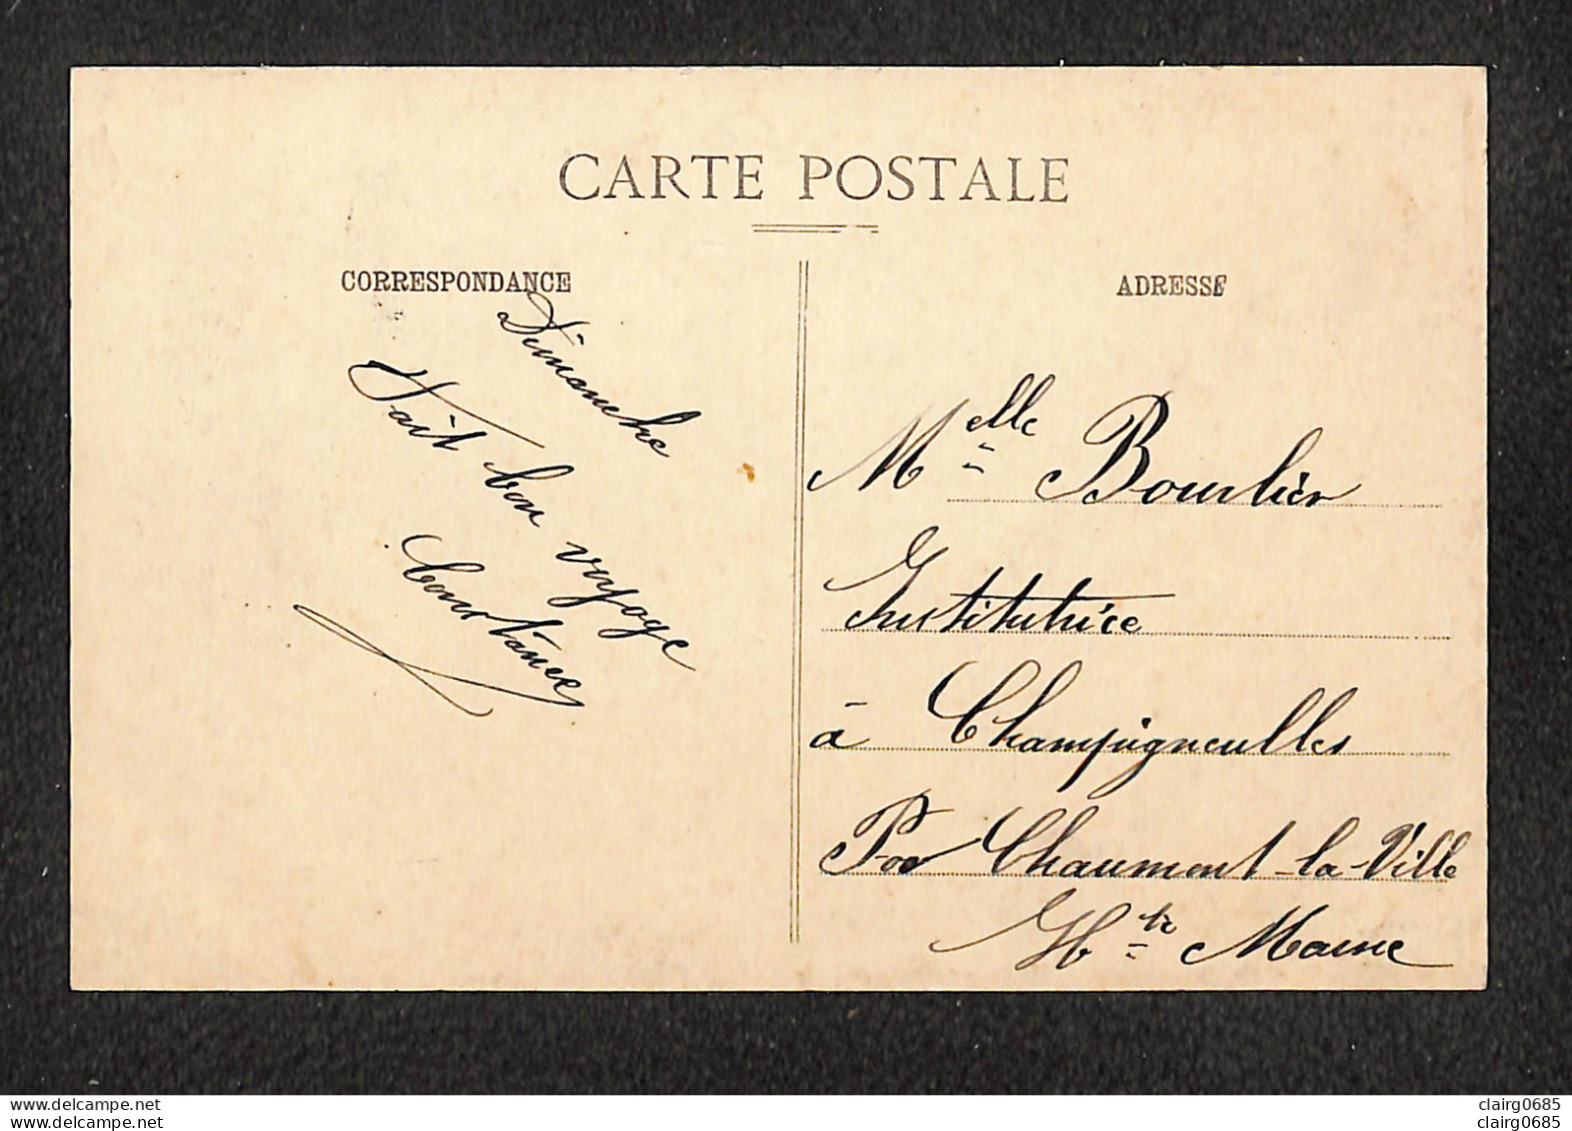 CARTE POSTALE
CORRESPONDANCE
Dimanche
Fait bon voyage
Constance
ADRESSE
Melle Bourlier
Institutrice
à Champigneulles
Par Chaumont-la-Ville
Hte Marne
www.delcampe.net
www.delcampe.net
clairg0685
clairg0685